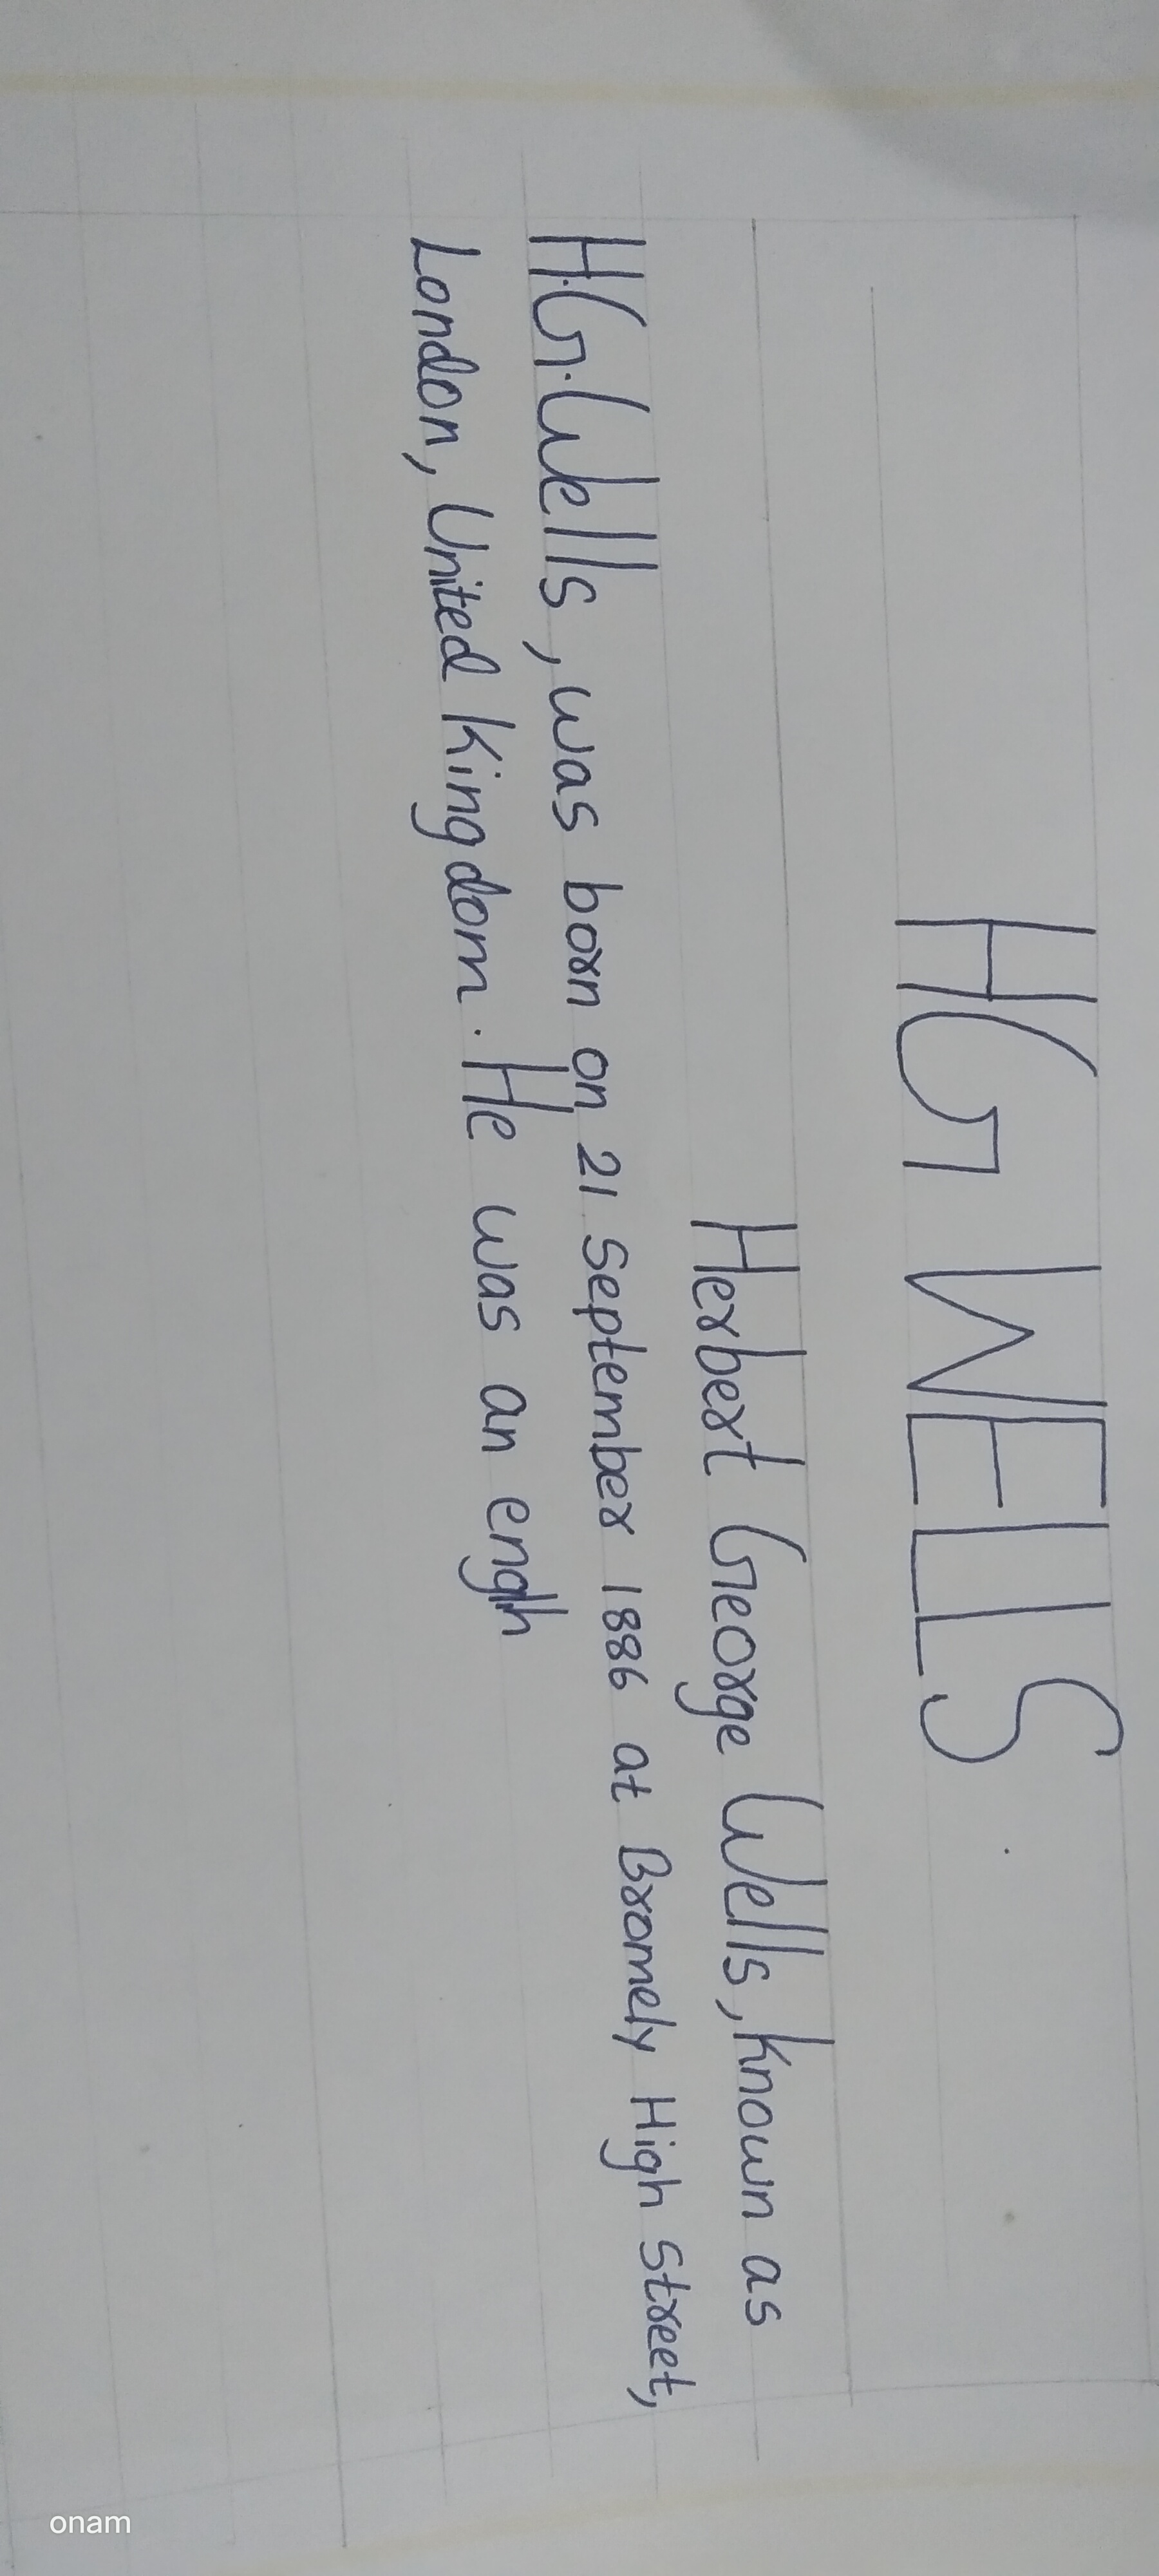 HG WELLS
Herbert George Wells, known as
H.G. Wells, was born on 21 September 1886 at Bromely High Street,
London, United Kingdom. He was an engln
onam